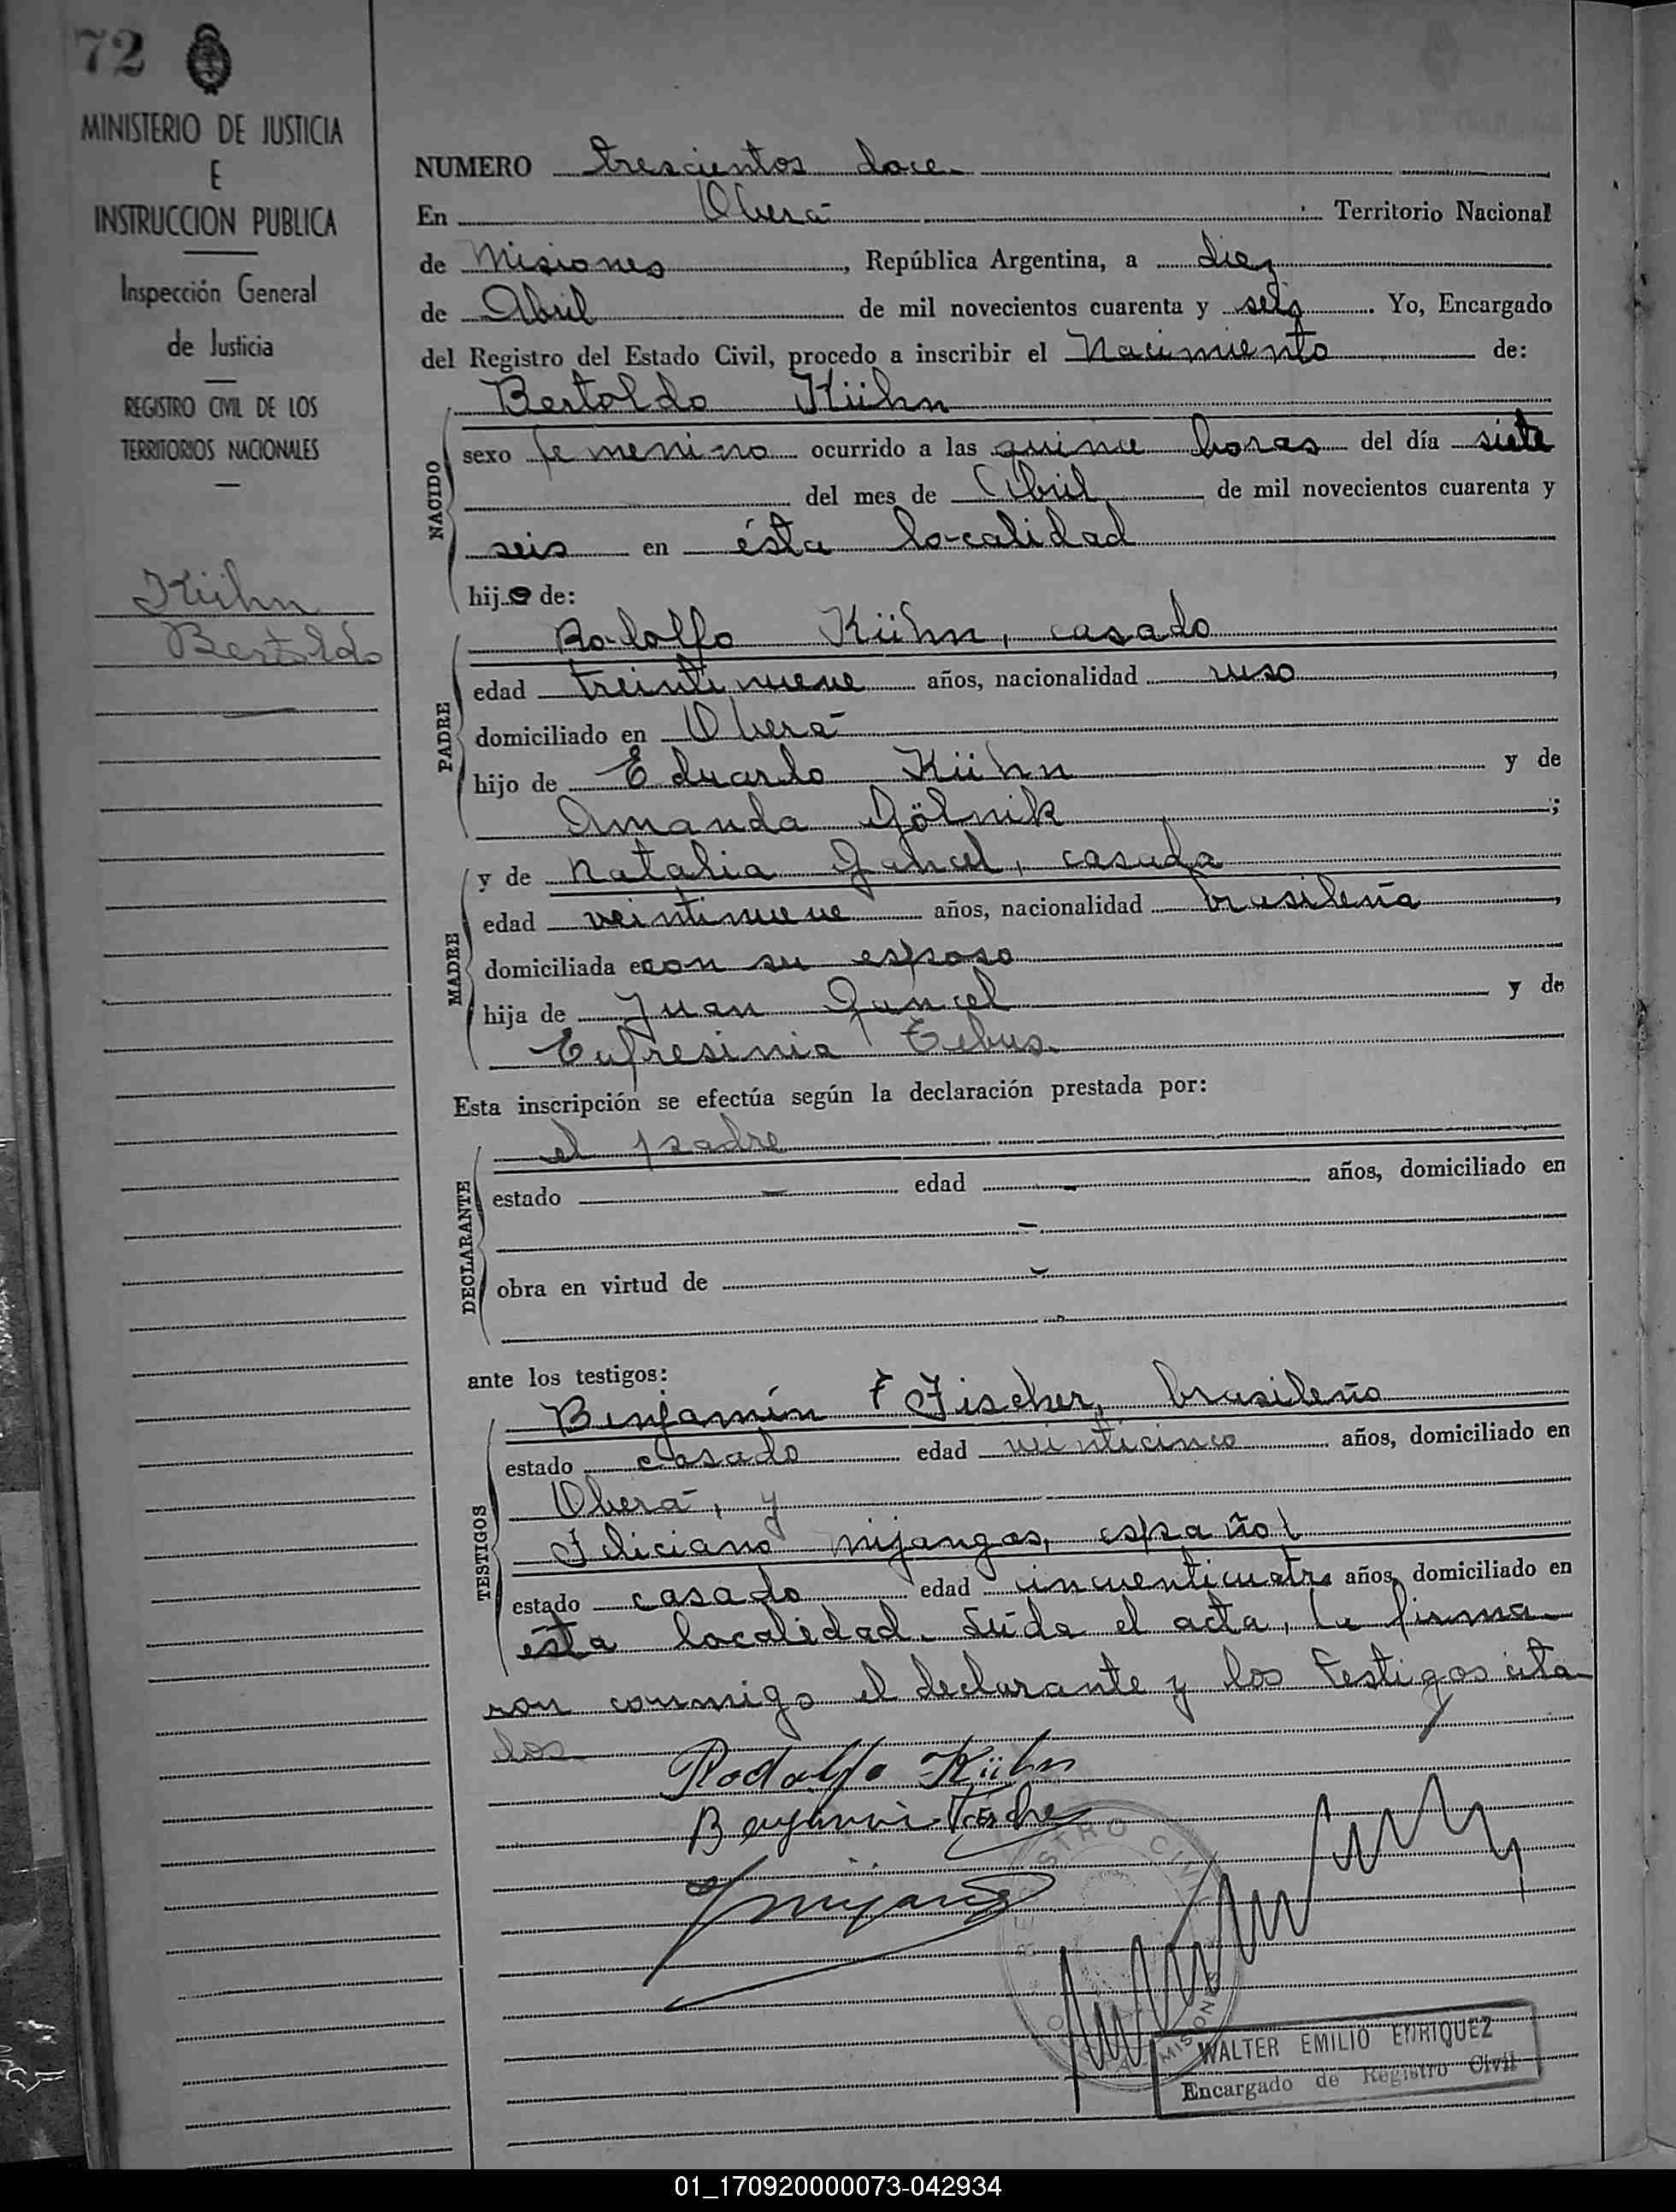 72
MINISTERIO DE JUSTICIA
E
INSTRUCCION PUBLICA
Inspección General
de Justicia
REGISTRO CIVIL DE LOS
TERRITORIOS NACIONALES
Kühn
Bertoldo
NUMERO trescientos doce
En Oberá Territorio Nacional
de Misiones, República Argentina, a diez
de Abril de mil novecientos cuarenta y seis. Yo, Encargado
del Registro del Estado Civil, procedo a inscribir el Nacimiento de:
Bertoldo Kühn
NACIDO
sexo femenino ocurrido a las quince horas del día siete
del mes de Abril, de mil novecientos cuarenta y
seis en ésta localidad
hijo de:
PADRE
Rodolfo Kühn, casado
edad treintinueve años, nacionalidad ruso,
domiciliado en Oberá
hijo de Eduardo Kühn y de
Amanda ;
MADRE
y de Natalia casada
edad veintinueve años, nacionalidad brasileña,
domiciliada con su esposo
hija de Juan y de
Eufresinia
Esta inscripción se efectúa según la declaración prestada por:
DECLARANTE
el padre
estado — edad — años, domiciliado en
obra en virtud de
ante los testigos:
TESTIGOS
Benjamín F Fischer, brasileño
estado casado edad veinticinco años, domiciliado en
Oberá, y
Feliciano Mijangos, español
estado casado edad cincuenticuatro años, domiciliado en
ésta localidad. Leída el acta, la firma-
ron conmigo el declarante y los testigos cita-
dos
Rodolfo Kühn
REGISTRO CIVIL
MISIONES
WALTER EMILIO ENRIQUEZ
Encargado de Registro Civil
01_170920000073-042934